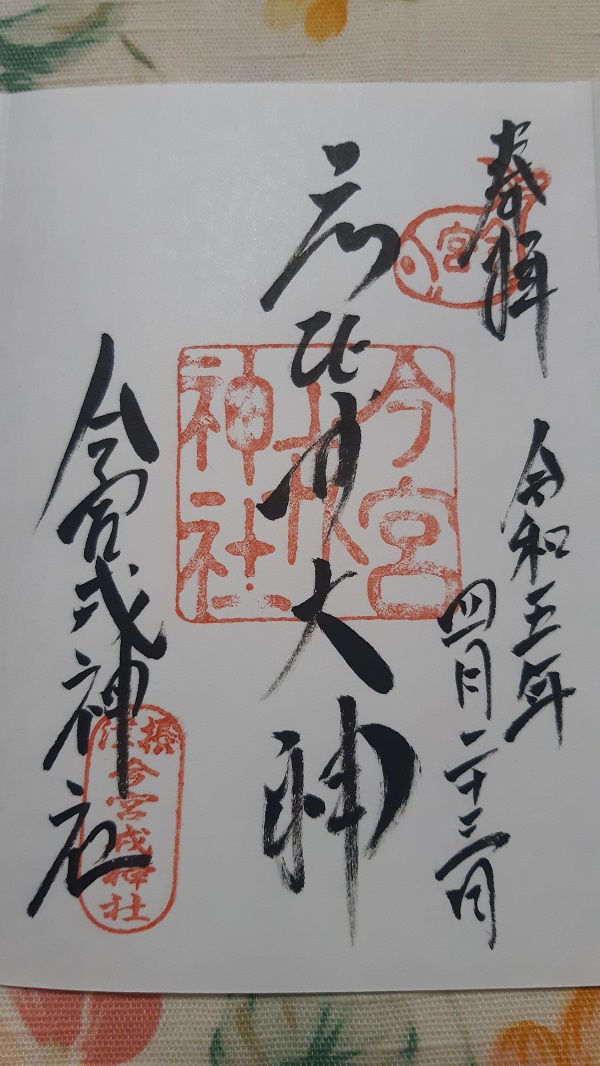 奉拝
今宮
令和五年
四月二十三日
ゑびす大神
今宮
戎
神社
今宮戎神社
攝津
今宮戎神社